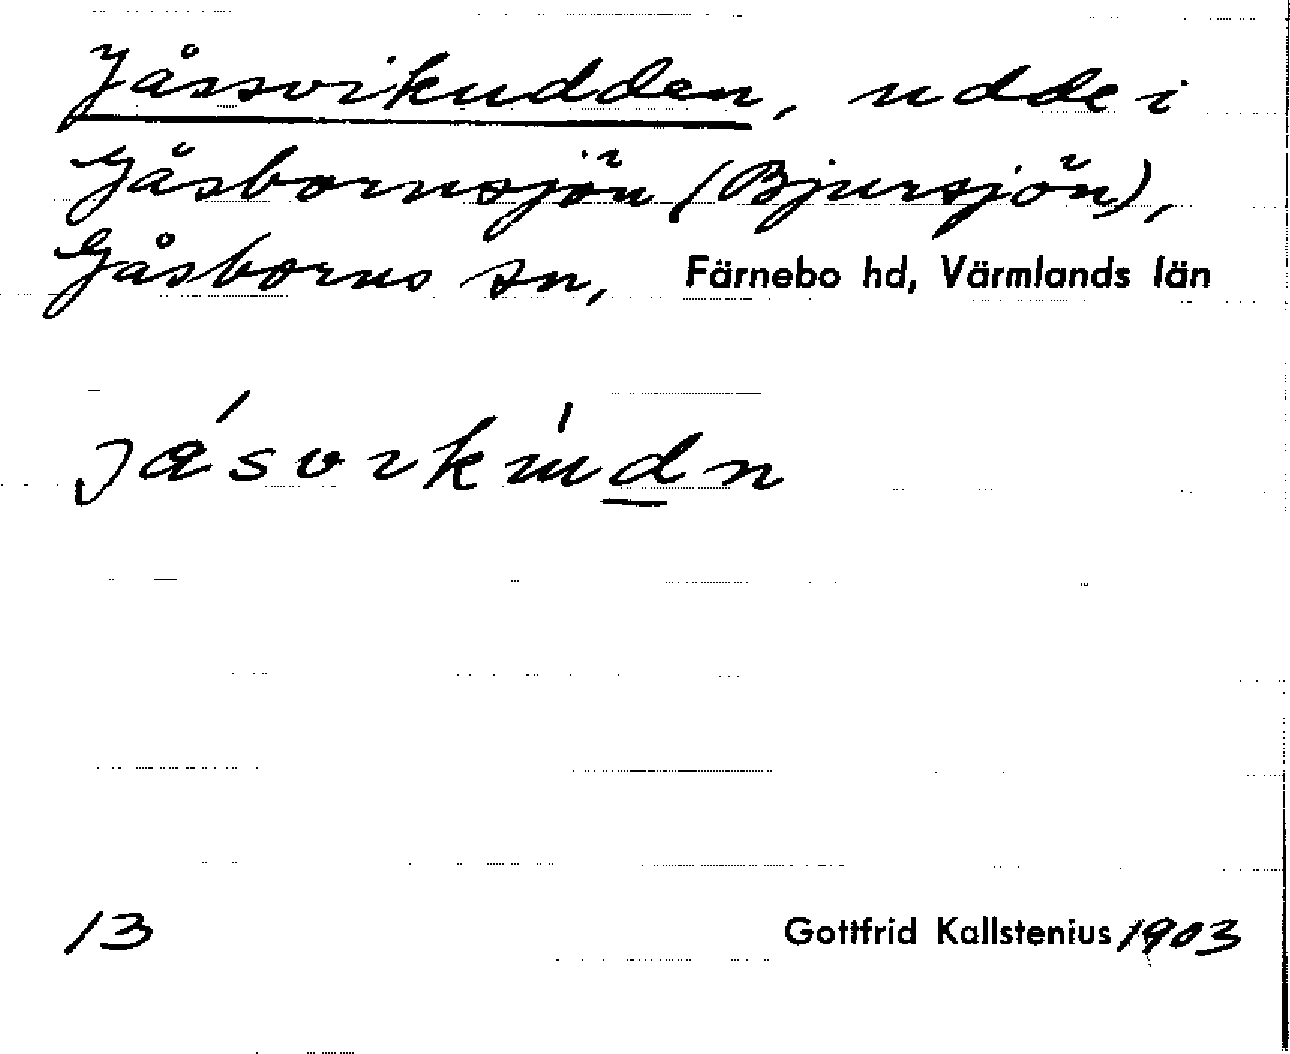 Jåssvikudden, udde i
Gåsbornsjön (Bjursjön),
Gåsborns sn, Färnebo hd, Värmlands län
13
Gottfrid Kallstenius 1903